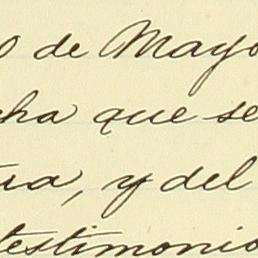 0 de Mayo
cha que se
ura, y del
testimonio